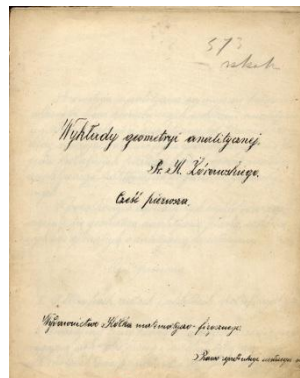 573
Wykłady geometryi analitycznej.
Dr. K. Żórawskiego.
Część pierwsza.
Wydawnictwo Kółka matematyczno-fizycznego
Prawo